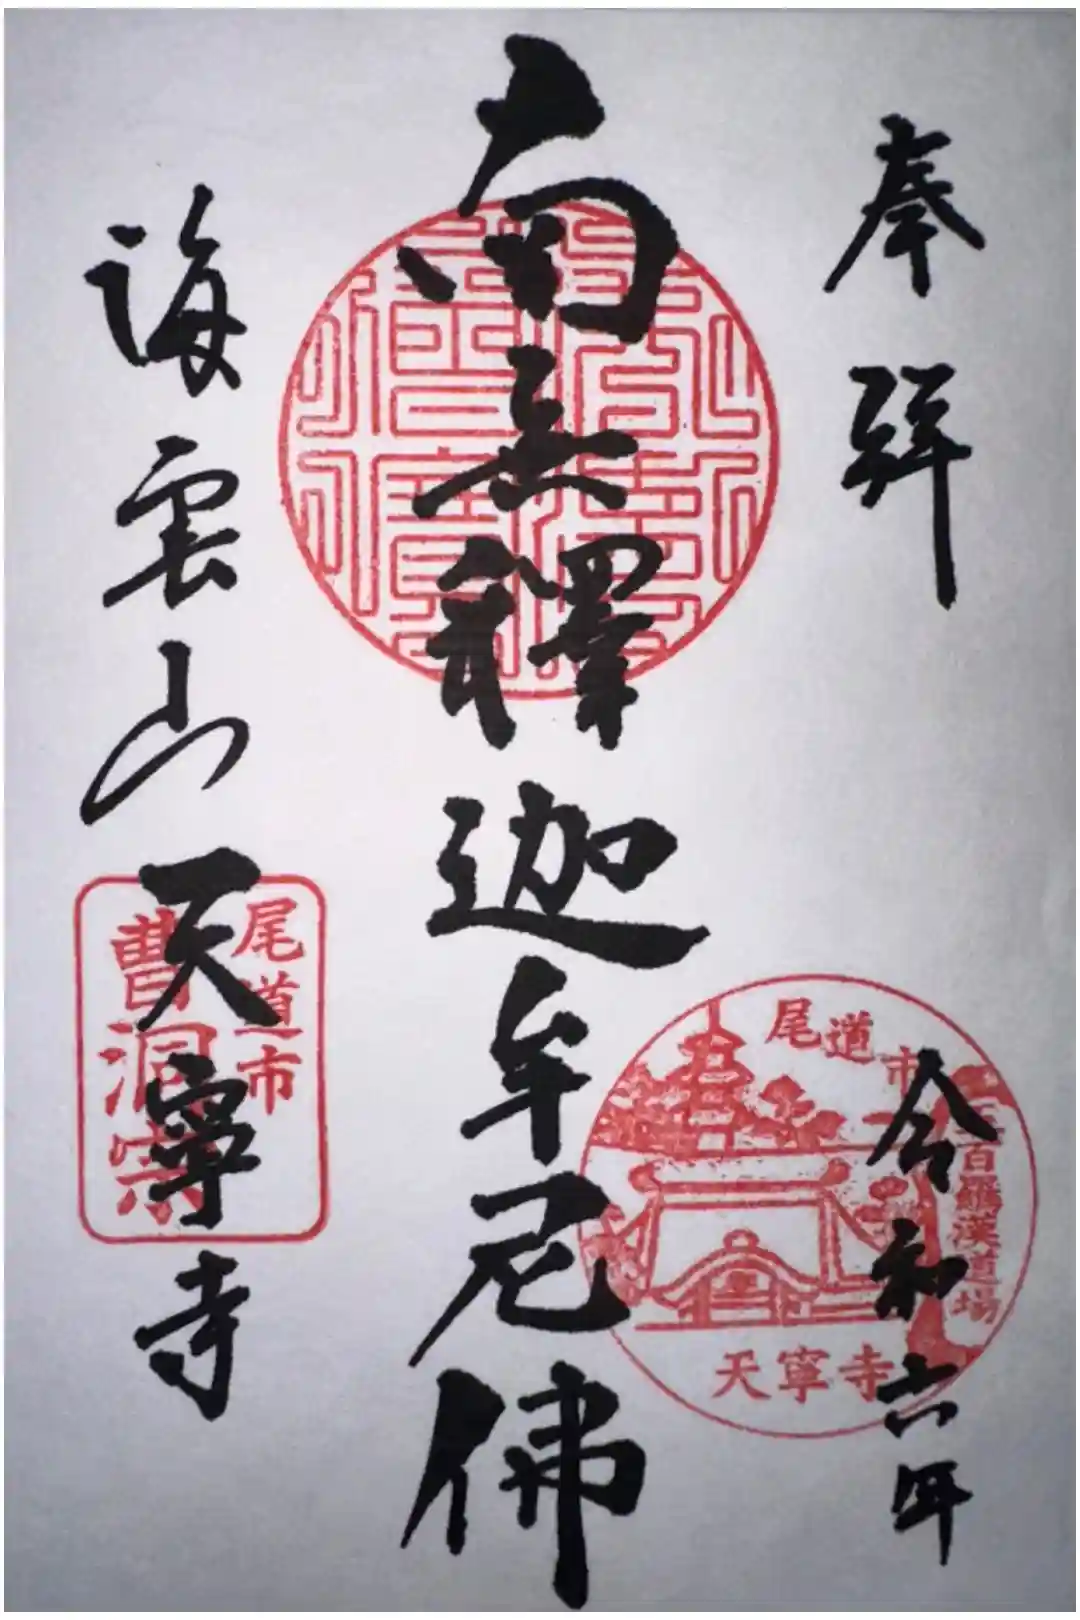 奉拜
令和六年
尾道市
五百羅漢道場
天寧寺
南無釋迦牟尼佛
海雲山天寧寺
尾道市
曹洞宗